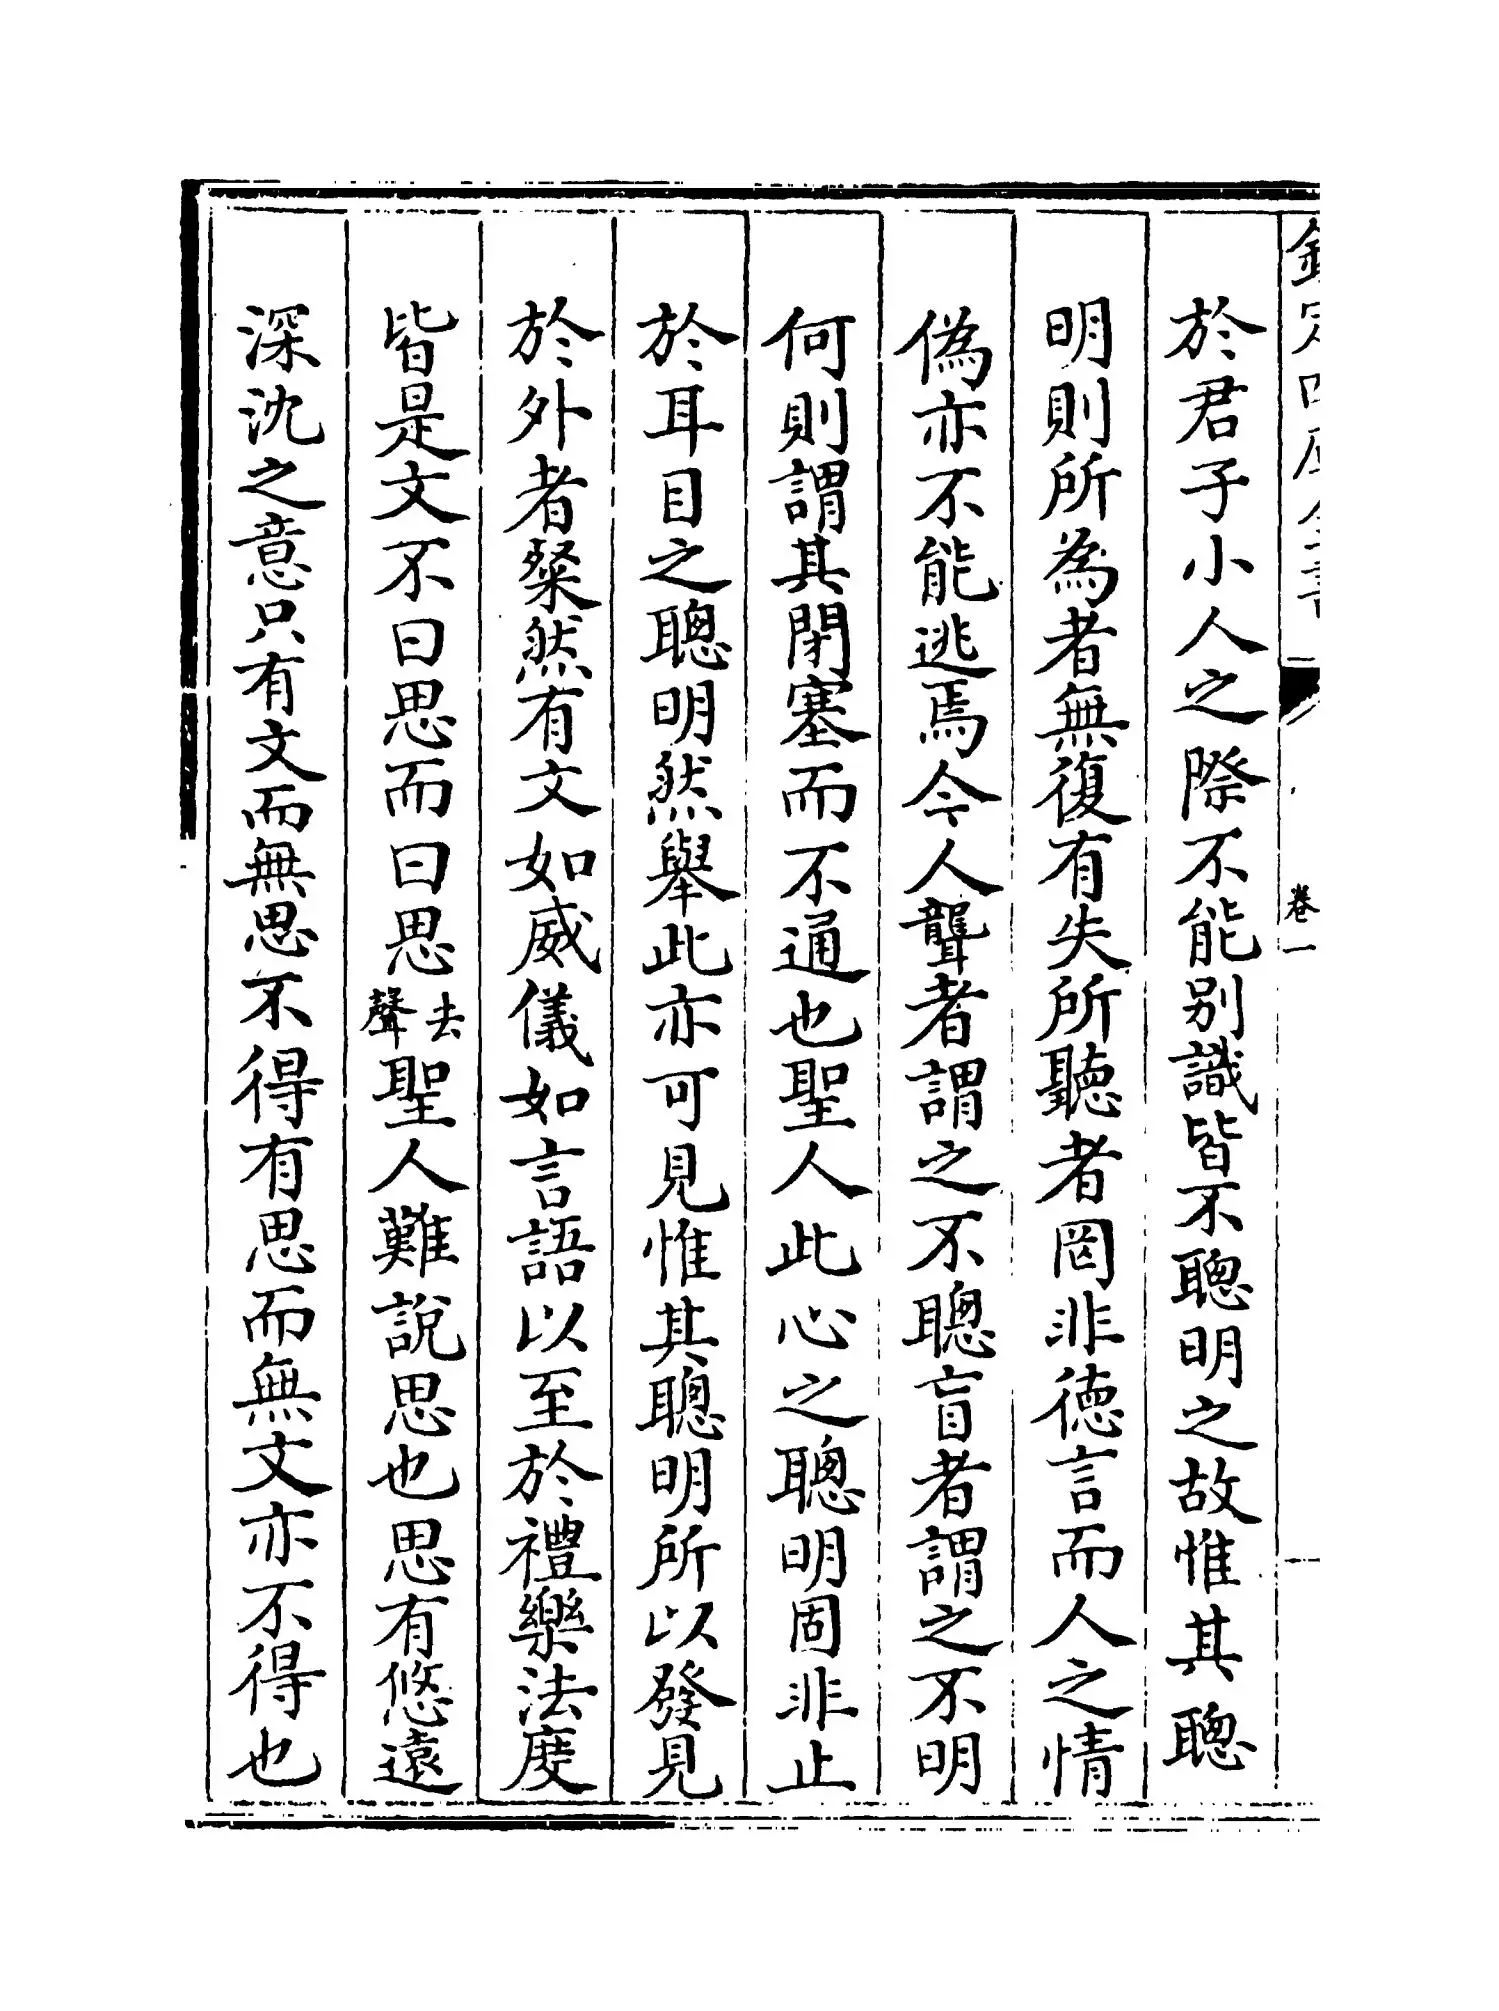 欽定四庫全書
卷一
於君子小人之際不能别識皆不聰明之故惟其聰
明則所為者無復有失所聽者罔非徳言而人之情
偽亦不能逃焉今人聾者謂之不聰盲者謂之不明
何則謂其閉塞而不通也聖人此心之聰明固非止
於耳目之聰明然舉此亦可見惟其聰明所以發見
於外者粲然有文如威儀如言語以至於禮樂法度
皆是文不曰思而曰思去聲聖人難說思也思有悠遠
深沈之意只有文而無思不得有思而無文亦不得也